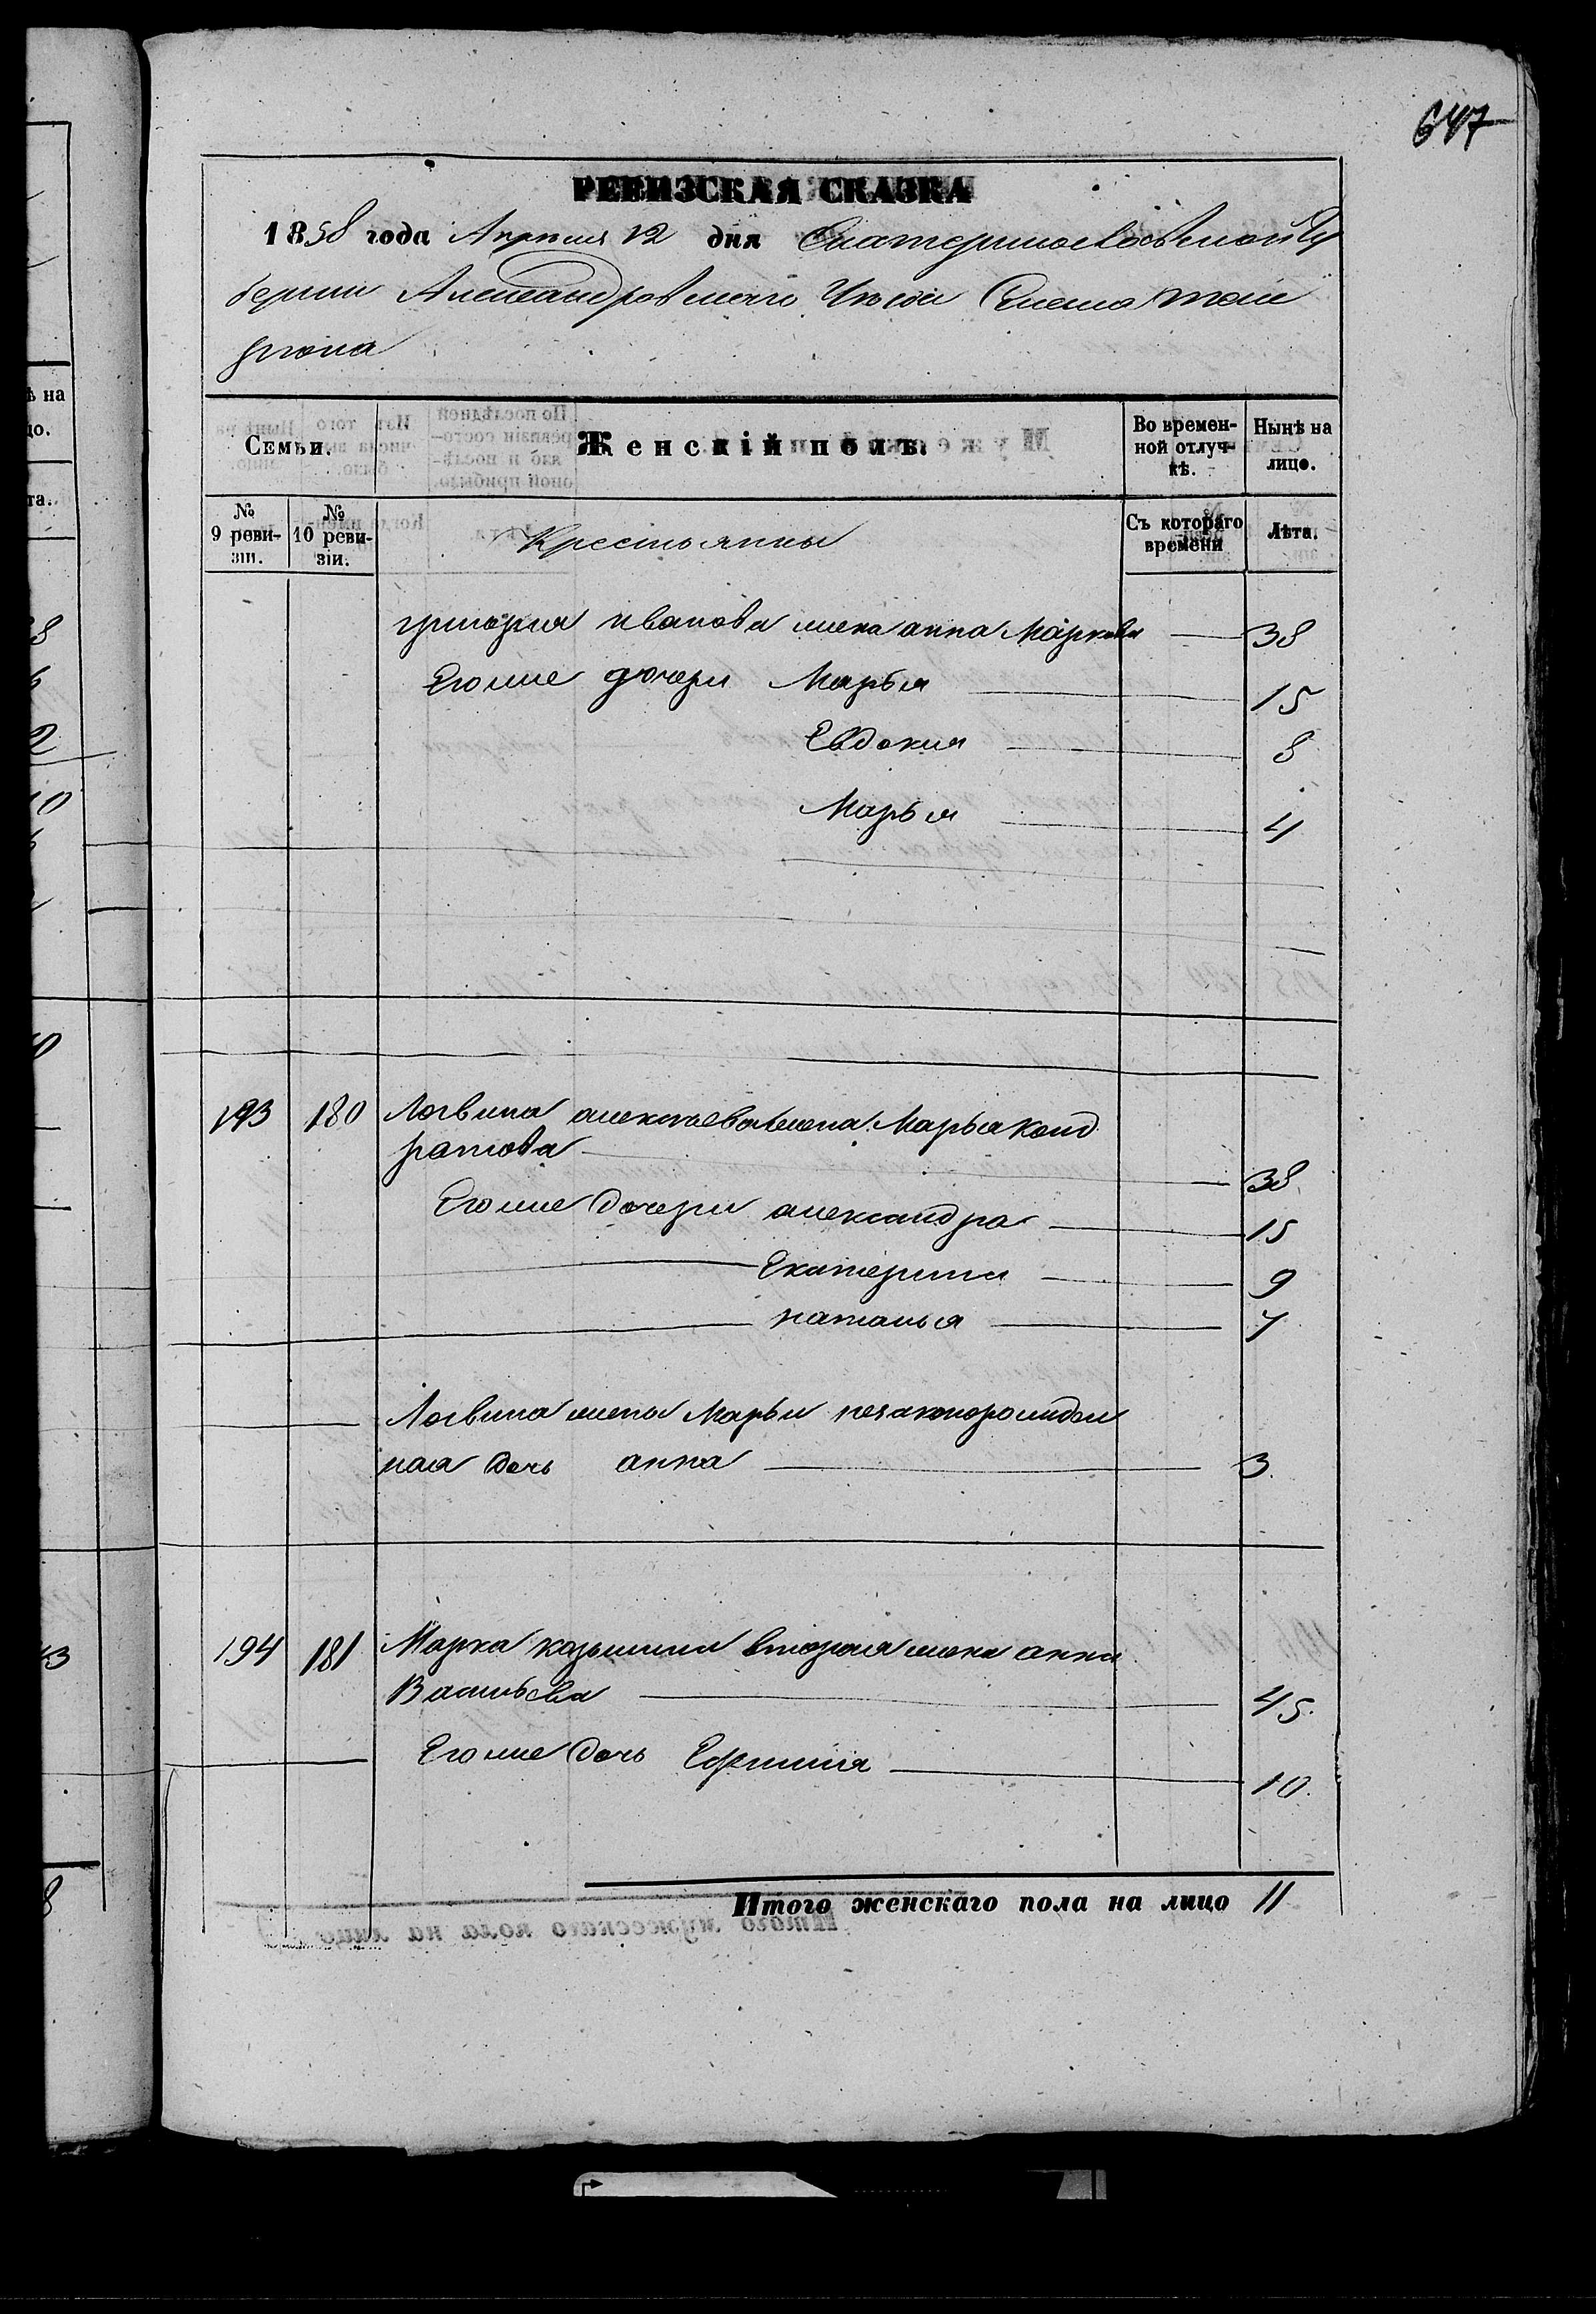 647
РЕВИЗСКАЯ СКАЗКА
1858 года Апреля 12 дня Екатеринославской Гу
бернии Александровскаго Уезда
Семьи.
Женскій полъ.
Во времен-
ной отлуч-
кѣ.
Нынѣ на
лицо.
№
9 реви-
зіи.
№
10 реви-
зіи.
Крестьянны
Съ котораго
времени
Лѣта.
григория иванова жена анна Маркова 38
Его же дочери Марья 15
Евдокия 8
Марья 4
193 180 Логвина алексъева жена Марья Конд
ратова 38
Его же Дочери александра 15
Екатерина 9
наталья 7
Логвина жены Марьи незаконорожден
ная дочь анна 3
194 181 Марка козьмина вторая жена анна
Васильева 45
Его же Дочь Ефимия 10
Итого женскаго пола на лицо 11